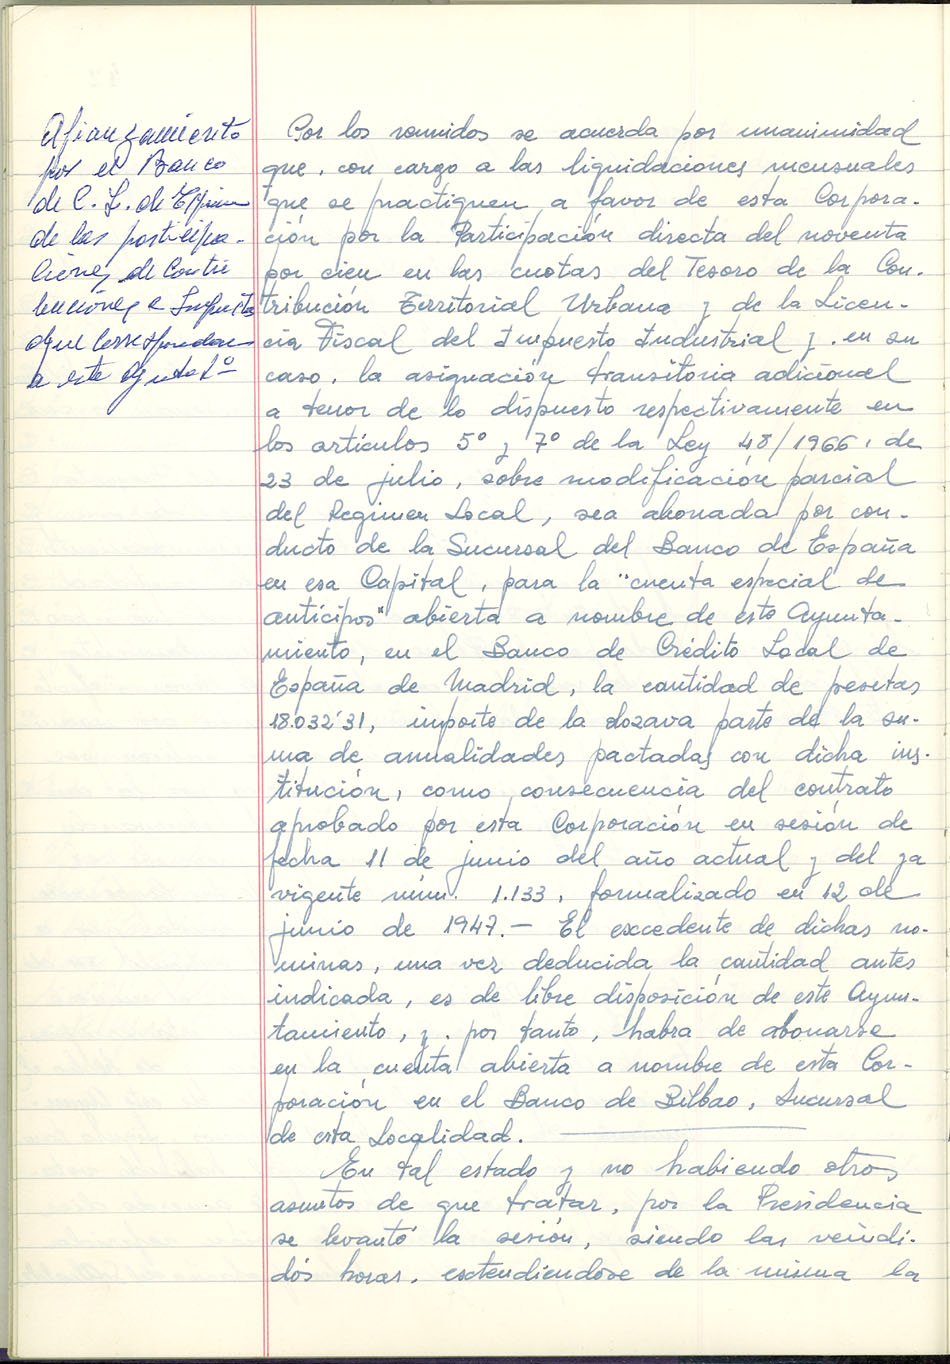 Afianzamiento
por el Banco
de C. L. de España
de las participa-
ciones de Contri
buciones e Impuestos
que correspondan
a este Aytº
Por los reunidos se acuerda por unanimidad
que, con cargo a las liquidaciones mensuales
que se practiquen a favor de esta Corpora-
ción por la Participación directa del noventa
por cien en las cuotas del Tesoro de la Con-
tribución Territorial Urbana y de la Licen-
cia Fiscal del Impuesto Industrial y, en su
caso, la asignación transitoria adicional
a tenor de lo dispuesto respectivamente en
los artículos 5º y 7º de la Ley 48/1966, de
23 de julio, sobre modificación parcial
del Regimen Local, sea abonada por con-
ducto de la Sucursal del Banco de España
en esa Capital, para la "cuenta especial de
anticipos" abierta a nombre de este Ayunta-
miento, en el Banco de Crédito Local de
España de Madrid, la cantidad de pesetas
18.032'31, importe de la dozava parte de la su-
ma de anualidades pactadas con dicha ins-
titución, como consecuencia del contrato
aprobado por esta Corporación en sesión de
fecha 11 de junio del año actual y del ya
vigente núm. 1.133, formalizado en 12 de
junio de 1947.- El excedente de dichas nó-
minas, una vez deducida la cantidad antes
indicada, es de libre disposición de este Ayun-
tamiento, y, por tanto, habra de abonarse
en la cuenta abierta a nombre de esta Cor-
poración en el Banco de Bilbao, Sucursal
de esta Localidad.
En tal estado y no habiendo otros
asuntos de que tratar, por la Presidencia
se levantó la sesión, siendo las veindi-
dós horas, extendiendose de la misma la